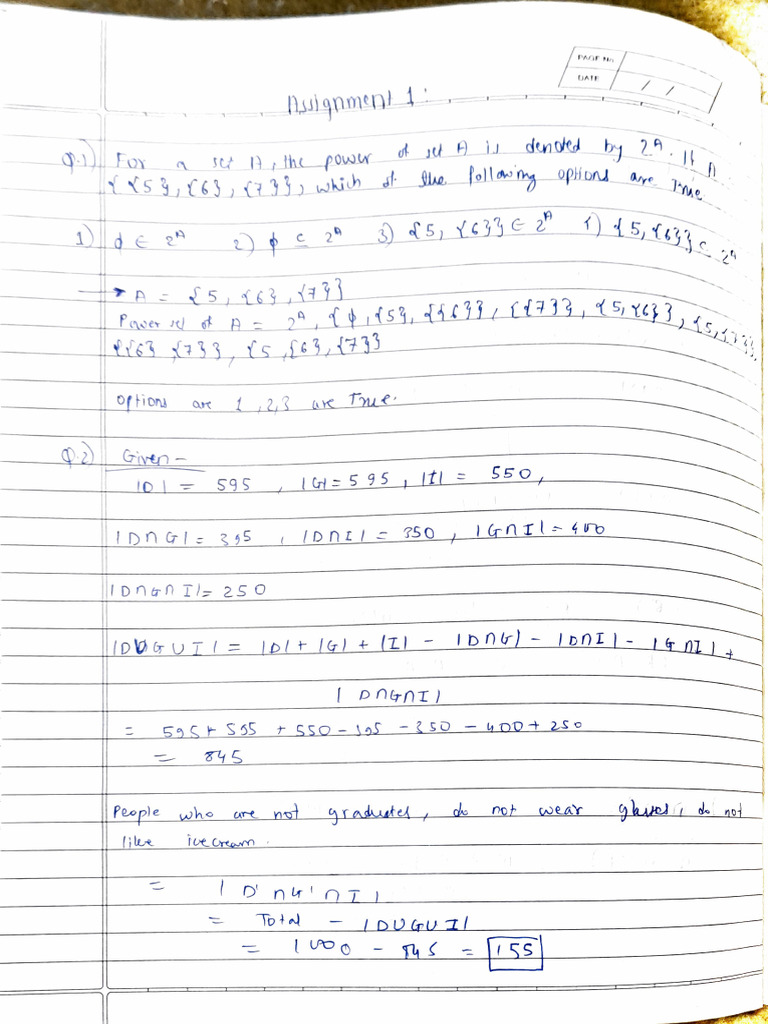 PAGE No.
DATE / /
Assignment 1:
Q.1) For a set A, the power of set A is denoted by 2^A. If A
{ {5}, {6}, {7}}, which of the following options are True
1) ϕ ∈ 2^A 2) ϕ ⊆ 2^A 3) {5, {6}} ∈ 2^A 4) {5, {6}} ⊆ 2^A
→ A = {5, {6}, {7}}
Power set of A = 2^A, {ϕ, {5}, {{6}}, {{7}}, {5, {6}}, {5, {7}},
{{6} {7}}, {5, {6}, {7}}
options are 1, 2, 3 are True.
Q.2) Given -
|D| = 595, |G| = 595, |I| = 550,
|D∩G| = 395, |D∩I| = 350, |G∩I| = 400
|D∩G∩I| = 250
|D∪G∪I| = |D| + |G| + |I| - |D∩G| - |D∩I| - |G∩I| +
|D∩G∩I|
= 595 + 595 + 550 - 395 - 350 - 400 + 250
= 845
People who are not graduates, do not wear glasses, do not
like icecream.
= |D'∩G'∩I|
= Total - |D∪G∪I|
= 1000 - 845 = 155